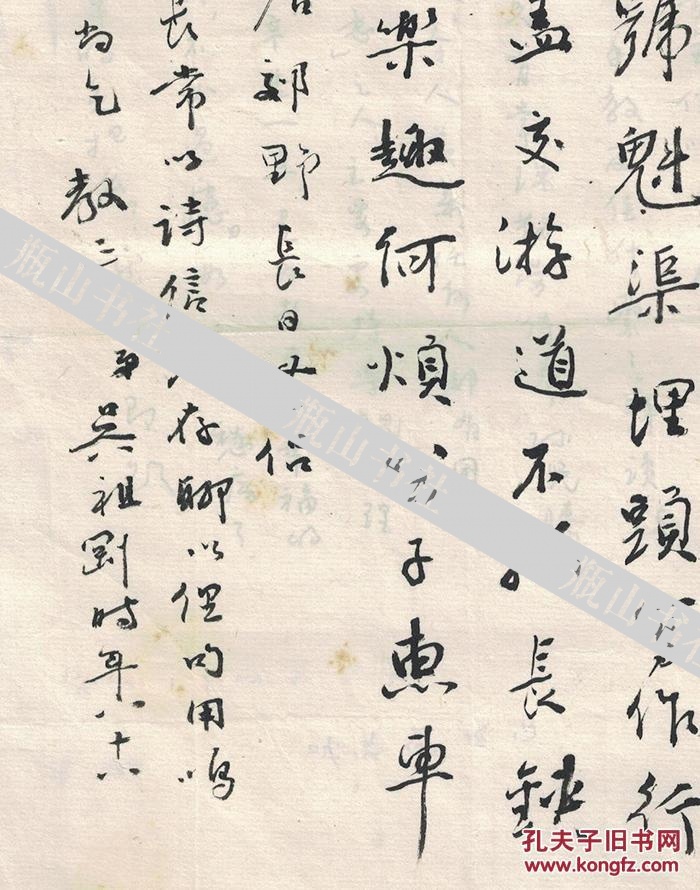 號魁渠埋頭作行
盖交游道不長鋏
樂趣何煩子惠車
郊野長日又信
長常以詩信存聊以俚句用鳴
尚乞教 吴祖剛時年八十六
瓶山书社
瓶山书社
瓶山书社
孔夫子旧书网
www.kongfz.com